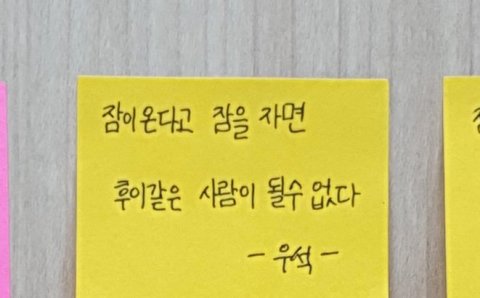 잠이온다고 잠을 자면
후이같은 사람이 될수 없다
- 우석 -